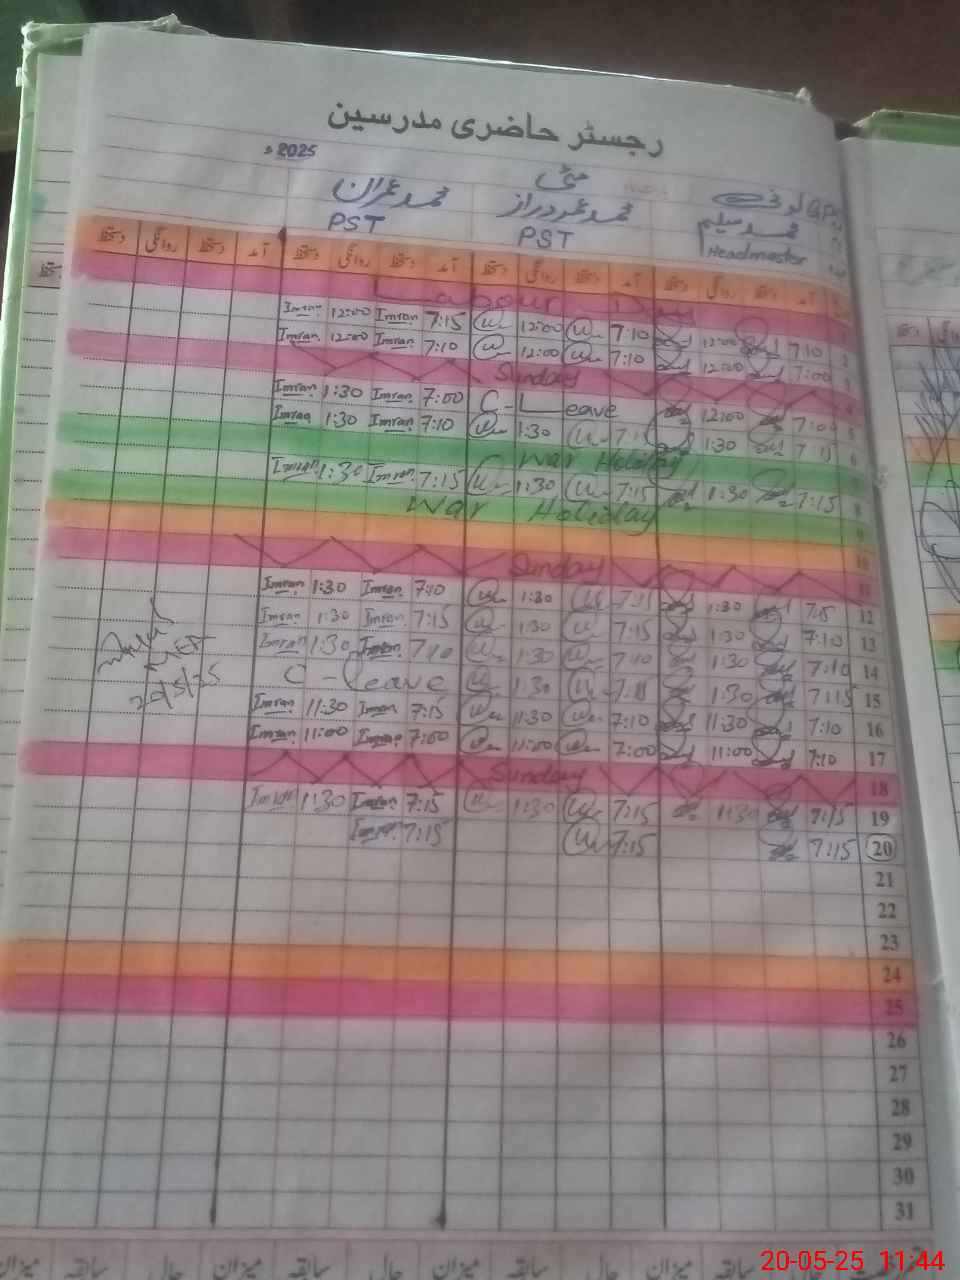 رجسٹر حاضری مدرسین
مئی 2025ء
GPS
محمد سلیم محمد عمر دراز محمد عمران
Headmaster PST PST
آمد دستخط روانگی دستخط آمد دستخط روانگی دستخط آمد دستخط روانگی دستخط آمد دستخط روانگی دستخط
Labour Day
Imran 12:00 Imran 7:15 12:00 7:10 12:00 7:10 2
Imran 12:00 Imran 7:10 12:00 7:10 12:00 7:00 3
Sunday 4
Imran 1:30 Imran 7:00 C-Leave 12:00 7:00 5
Imran 1:30 Imran 7:10 1:30 7:15 1:30 7:15 6
War Holiday
Imran 1:30 Imran 7:15 1:30 7:15 1:30 7:15 8
War Holiday 9
10
Sunday 11
Imran 1:30 Imran 7:10 1:30 7:15 1:30 7:15 12
Imran 1:30 Imran 7:15 1:30 7:15 1:30 7:10 13
Imran 1:30 Imran 7:10 1:30 7:10 1:30 7:10 14
C-Leave 1:30 1:30 7:15 15
20/5/25
Imran 11:30 Imran 7:15 11:30 7:10 11:30 7:10 16
Imran 11:00 Imran 7:00 11:00 7:00 11:00 7:10 17
Sunday 18
Imran 1:30 Imran 7:15 1:30 7:15 1:30 7:15 19
Imran 7:15 7:15 7:15 20
21
22
23
24
25
26
27
28
29
30
31
میزان سابقہ حال میزان سابقہ حال میزان سابقہ حال میزان
20-05-25 11:44